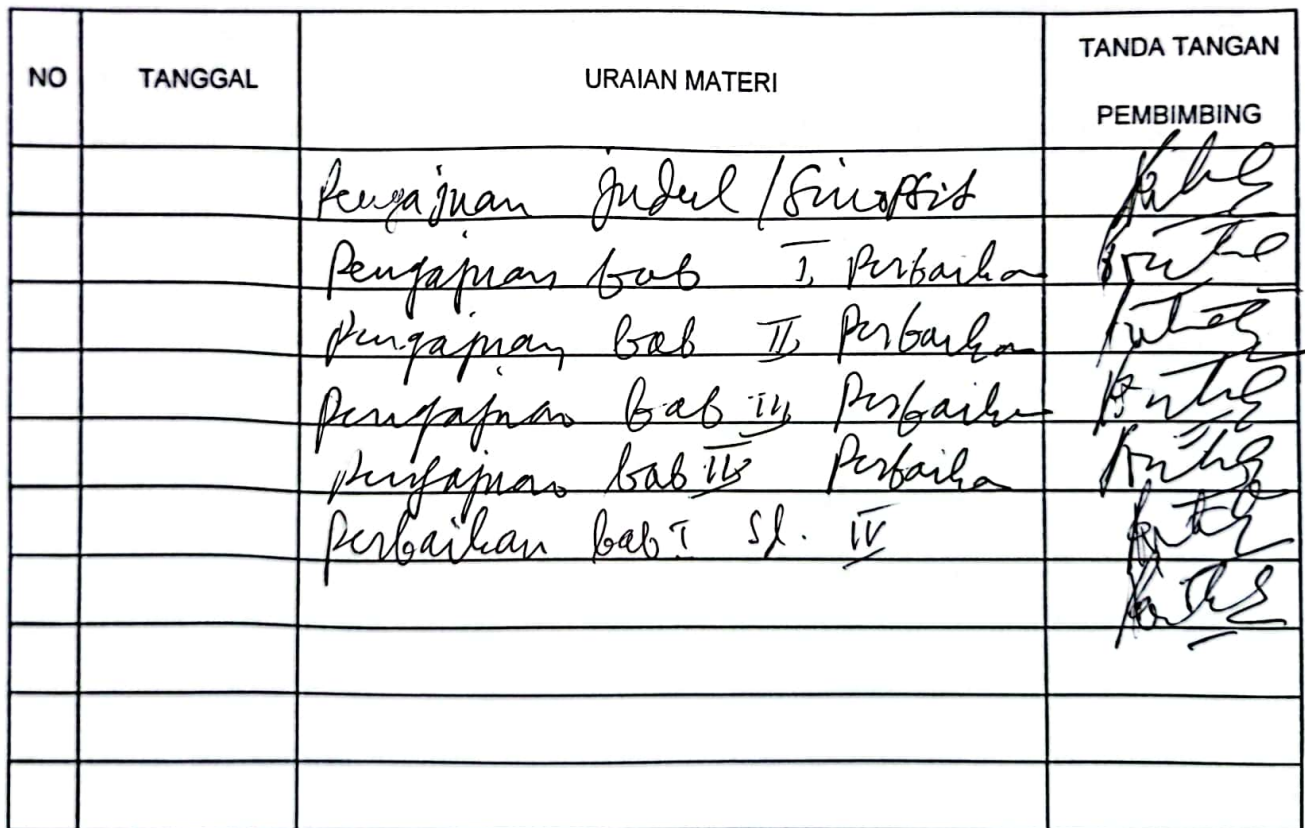 NO TANGGAL URAIAN MATERI TANDA TANGAN PEMBIMBING
Pengajuan Judul / Sinopsis
Pengajuan bab I, Perbaikan
Pengajuan bab II, Perbaikan
Pengajuan bab III, Perbaikan
Pengajuan bab IV Perbaikan
Perbaikan bab I Sd. IV